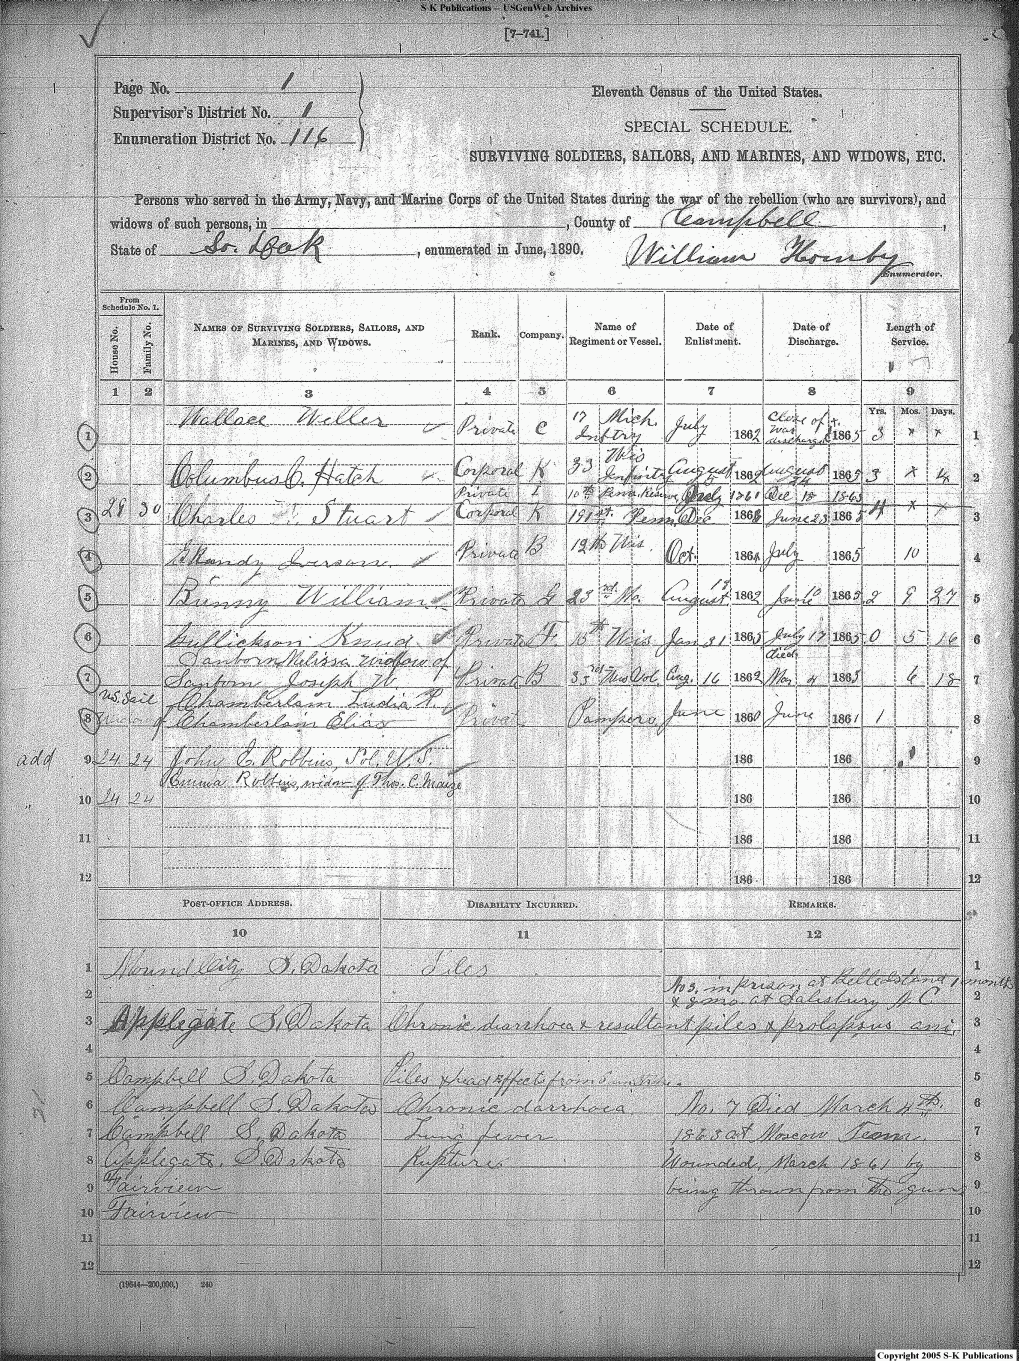 S-K Publications – USGenWeb Archives
[7–741.]
Page No. 1
Supervisor's District No. 1
Enumeration District No. 116
Eleventh Census of the United States.
SPECIAL SCHEDULE.
SURVIVING SOLDIERS, SAILORS, AND MARINES, AND WIDOWS, ETC.
Persons who served in the Army, Navy, and Marine Corps of the United States during the war of the rebellion (who are survivors), and
widows of such persons, in , County of Campbell ,
State of So. Dak , enumerated in June, 1890. William Hornby
Enumerator.
From Schedule No. 1.
House No. Family No. NAMES OF SURVIVING SOLDIERS, SAILORS, AND MARINES, AND WIDOWS. Rank. Company. Name of Regiment or Vessel. Date of Enlistment. Date of Discharge. Length of Service.
1 2 3 4 5 6 7 8 9
Yrs. Mos. Days.
1 Wallace Weller Private C 17 Mich July 1862 Close of war discharged 1865 3 x x 1
2 Columbus C. Hatch Corporal K 33 Wis August 1862 August 24 1865 3 x 4 2
Private 10th Penna. Reserve July 1861 Dec 18 1863
3 28 30 Charles Stuart Corporal K 191st. Penn. Dec 186 June 28 1865 4 x x 3
4 Iverson Private B 12th Wis. Oct. 1864 July 1865 10 4
5 Binny William Private G 23rd Wis. August 18 1862 June 1865 2 9 27 5
6 Gullickson Knud Private F. 15th Wis Jan 31 1865 July 17 1865 0 5 16 6
Sanborn Melissa widow of died
7 Sanborn Joseph W Private B 33rd Wis Vol. Aug. 16 1862 Mar 4 1863 6 18 7
U.S. Sail Chamberlain Ludia
8 Widow of Chamberlain Elias Privat Pampero June 1860 June 1861 1 8
add 9 24 24 John E. Robbins, Sol. U.S. 186 186 9
Emma Robbins, widow of Thos. C.
10 24 24 186 186 10
11 186 186 11
12 186 186 12
POST-OFFICE ADDRESS. DISABILITY INCURRED. REMARKS.
10 11 12
1 Mound City S. Dakota Piles 1
2 No 3. in prison at Belle Island 1 month 2
& 2 mo. at Salisbury N.C.
3 Applegate S. Dakota Chronic diarrhoea & resultant piles & prolapsus ani. 3
4 4
5 Campbell S. Dakota Piles & bad effects from 5
6 Campbell S. Dakota Chronic darrhoea. No. 7 Died March 4th. 6
7 Campbell S. Dakota Lung fever 1863 at Moscow Tenn. 7
8 Applegate. S. Dakota Rupture Wounded, March 1861 by 8
9 Fairview being thrown from the gun 9
10 Fairview 10
11 11
12 12
(19544—200,000.) 240
Copyright 2005 S-K Publications